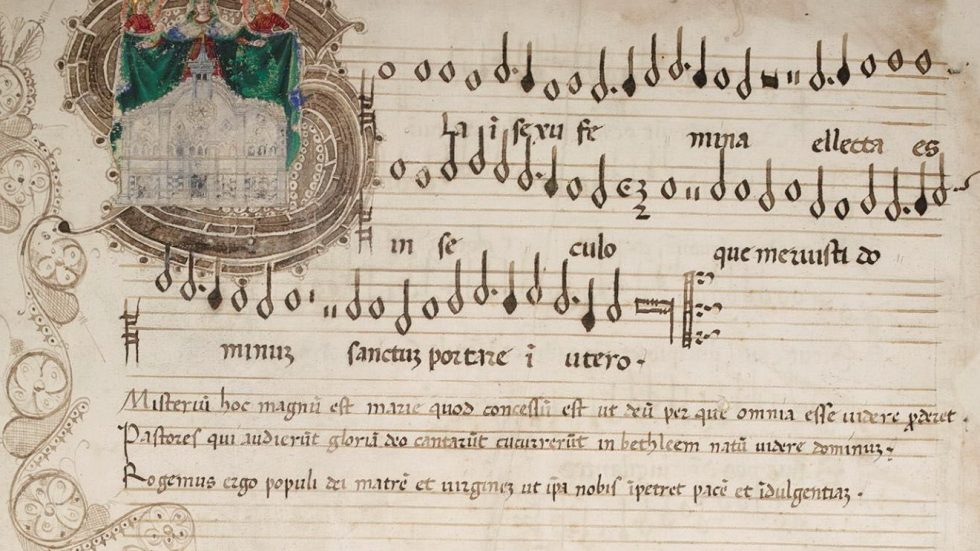 la ī sexu fe mina ellecta es
in se culo que meruisti do
minuz sanctuz portare ī utero.
Misteriū hoc magnū est marie quod concessū est ut deū per quē omnia esse videre ꝓderet.
Pastores qui audierūt gloriā deo cantarūt cucurrerūt in bethleem natū videre dominuz.
Rogemus ergo populi dei matrē et virginez ut ip̄a nobis īpetret pacē et īdulgentiaz.